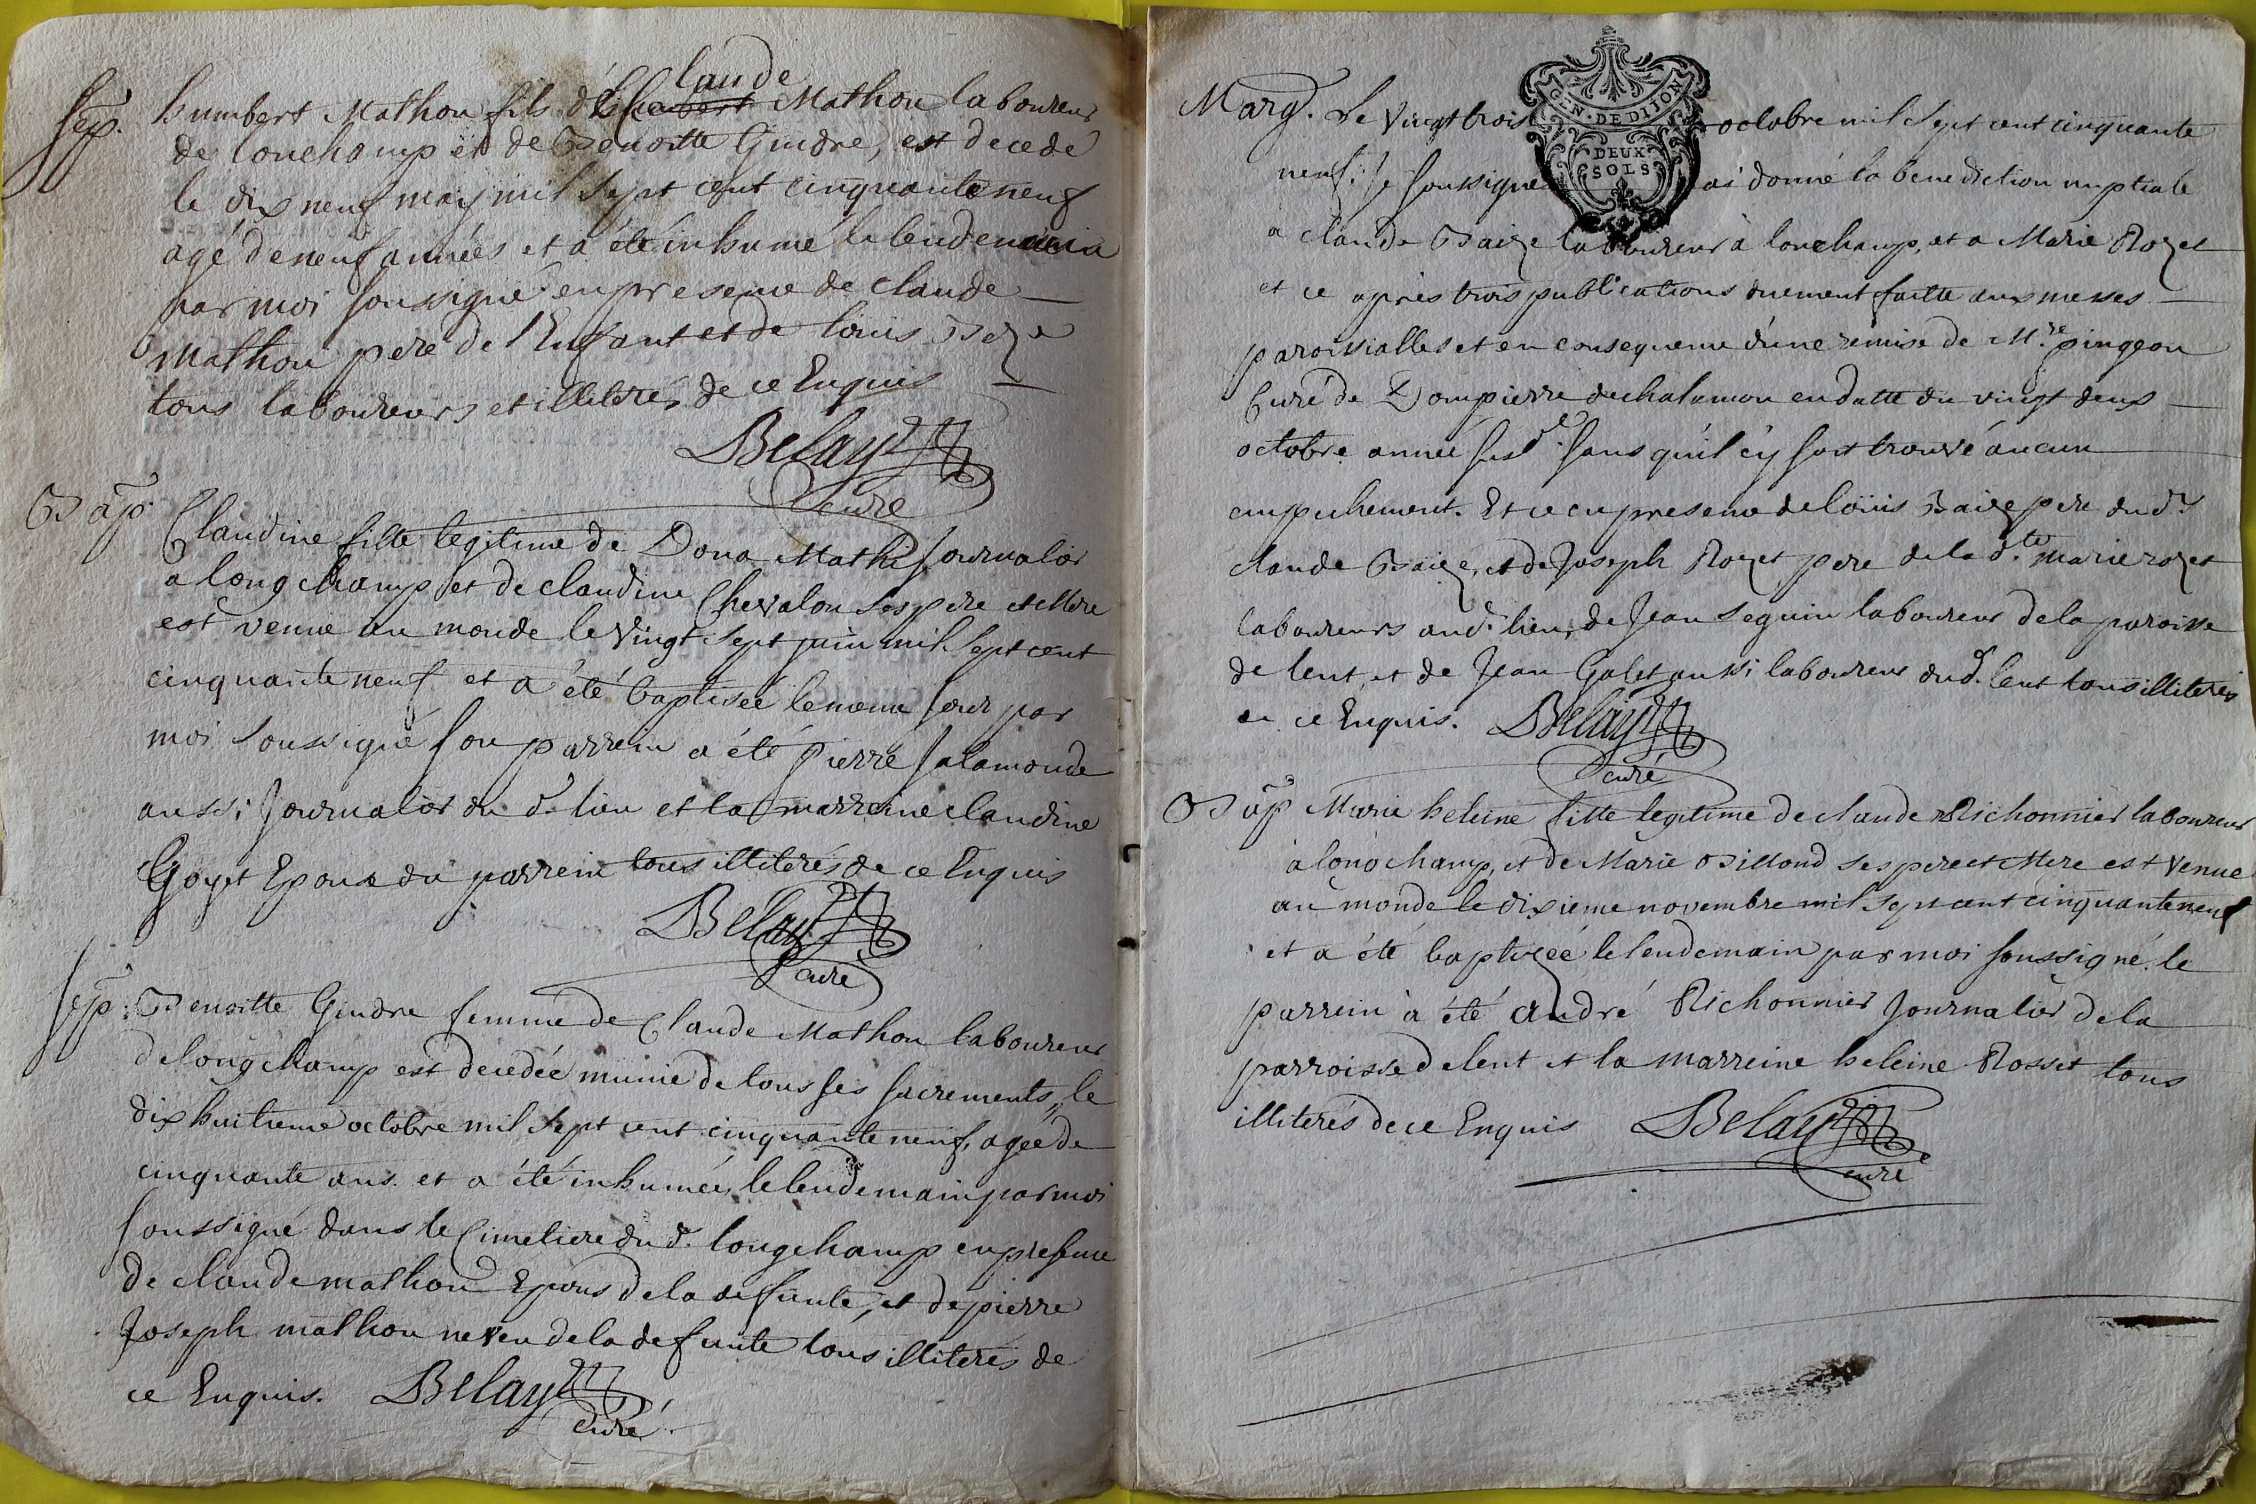 Sep. humbert Mathon fils de claude Mathon laboureur
de lonchamp et de Benoitte Gindre, est decedé
le dix neuf may mil sept cent cinquante neuf
agé de neuf années et a été inhumé le lendemain
par moi soussigné en presence de claude
Mathon pere de l'Enfant et de louis Beze
tous laboureurs et illiterés de ce Enquis
Belay
curé
Bap. Claudine fille legitime de Dona Mathi journalier
a longchamp et de claudine Chevalon ses pere et Mere
est venue au monde le vingt sept juin mil sept cent
cinquante neuf et a été baptisée le meme jour par
moi soussigné son parrein a été pierre salamonde
aussi journalier du d. lieu et la marreine claudine
Goyet Epouse du parrein tous illiterés de ce Enquis
Belay
curé
Sep. Benoitte Gindre femme de Claude Mathon laboureur
de longchamp est decedée munie de tous ses sacrements, le
dix huitieme octobre mil sept cent cinquante neuf, agée de
cinquante ans. et a été inhumée, le lendemain par moi
soussigné dans le Cimetiere du d. longchamp en presence
de claude mathon Epous de la defunte, et de pierre
Joseph mathon neveu de la defunte tous illiterés de
ce Enquis. Belay
curé
GEN. DE DIJON
DEUX
SOLS
Marg. Le vingt trois octobre mil sept cent cinquante
neuf; je soussigné ai donné la benediction nuptiale
a claude Baize laboureur à lonchamp, et a Marie Rozet
et ce après trois publications duement faitte aux messes
paroissialles et en consequence d'une remise de Mre pingeon
Curé de Dompierre de chalamon en datte du vingt deux
octobre année susd. sans qu'il ÿ soit trouvé aucun
empechement. Et ce en presence de loüis Baize pere du d.
claude Baize, et de Joseph Rozet pere de la d.te marie rozet
laboureurs aud. lieu, de Jean seguin laboureur de la paroisse
de lent, et de Jean Galet aussi laboureur dud. lent tous illiterés
de ce Enquis. Belay
curé
Bap Marie heleine fille legitime de claude Richonnier laboureur
à longchamp, et de Marie Billoud ses pere et Mere est venue
au monde le dixieme novembre mil sept cent cinquante neuf
et a été baptizée le lendemain par moi soussigné. le
parrein à été andré Richonnier Journalier de la
parroisse de lent et la marreine heleine Rosset tous
illiterés de ce Enquis Belay
curé